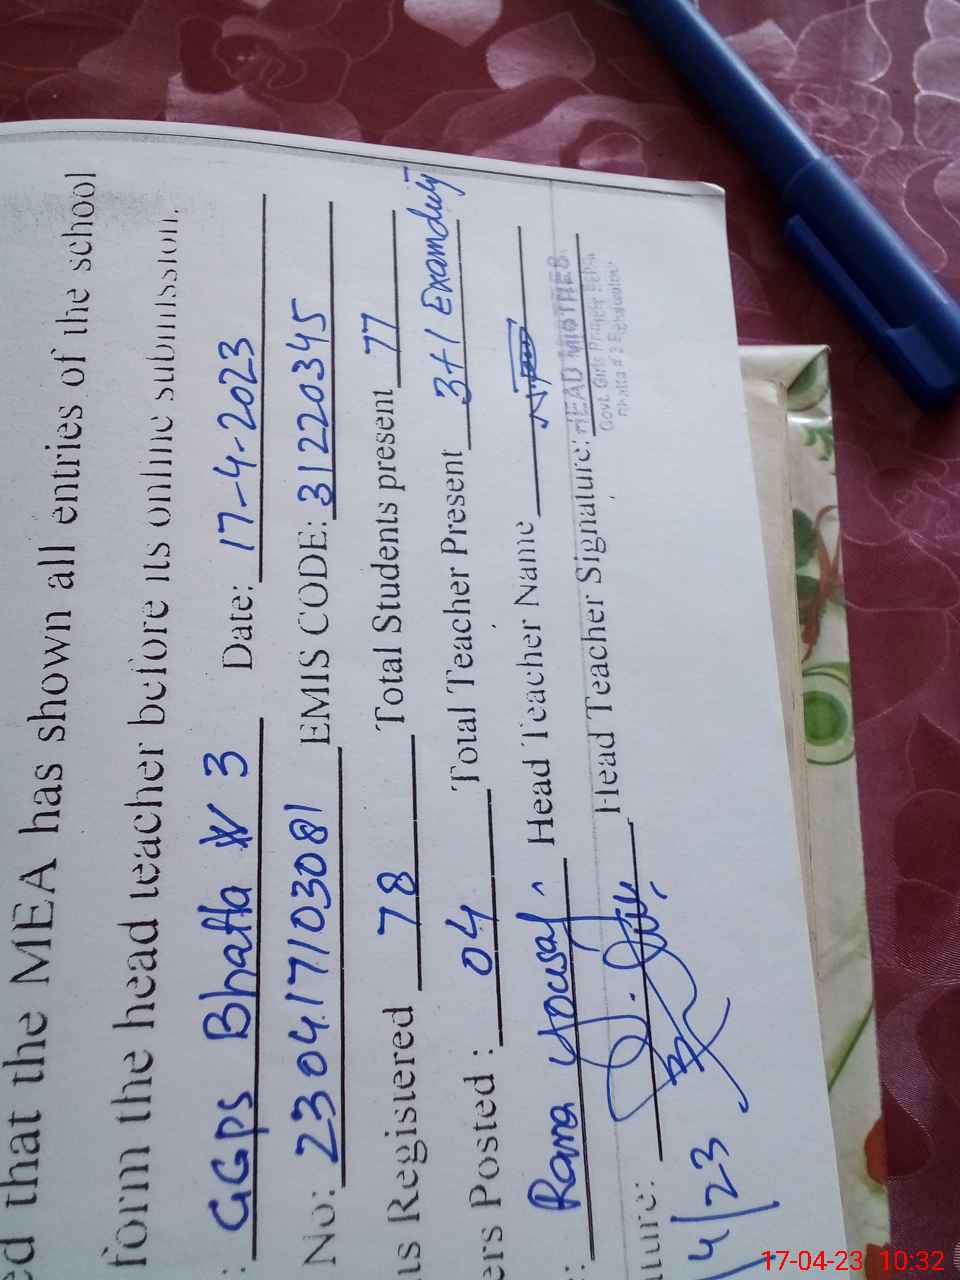 ed that the MEA has shown all entries of the school
form the head teacher before its online submission.
: GGPS Bhatta # 3 Date: 17-4-2023
No: 230417103081 EMIS CODE: 31220345
Registered 78 Total Students present 77
Posted : 04 Total Teacher Present 3+1 Examduty
: Rana Yousaf Head Teacher Name
Head Teacher Signature: HEAD MISTRES
Govt. Girls
Bhatta # 3 Bahawalpur
4/23
17-04-23 10:32